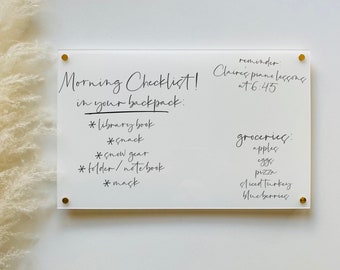 Morning Checklist!
in your backpack:
* library book
* snack
* snow gear
* folder/notebook
* mask
reminder:
Claire's piano lessons
at 6:45
groceries:
apples
eggs
pizza
sliced turkey
blueberries